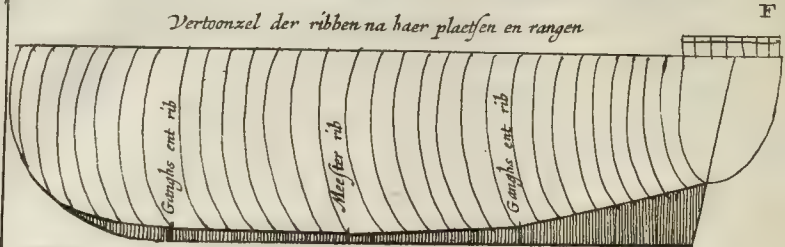 F
Vertoonzel der ribben na haer plaetſen en rangen
Ganghs ent rib
Meeſter rib
Ganghs ent rib